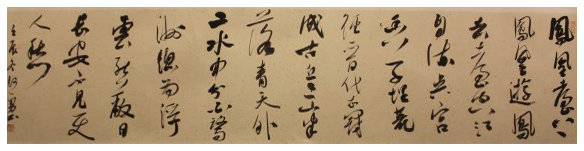 鳳凰臺上
鳳凰遊鳳
去臺空江
自流吳宮
花草埋幽
徑晉代衣冠
成古丘三山半
落青天外
二水中分白鷺
洲總為浮
雲能蔽日
長安不見使
人愁
壬辰